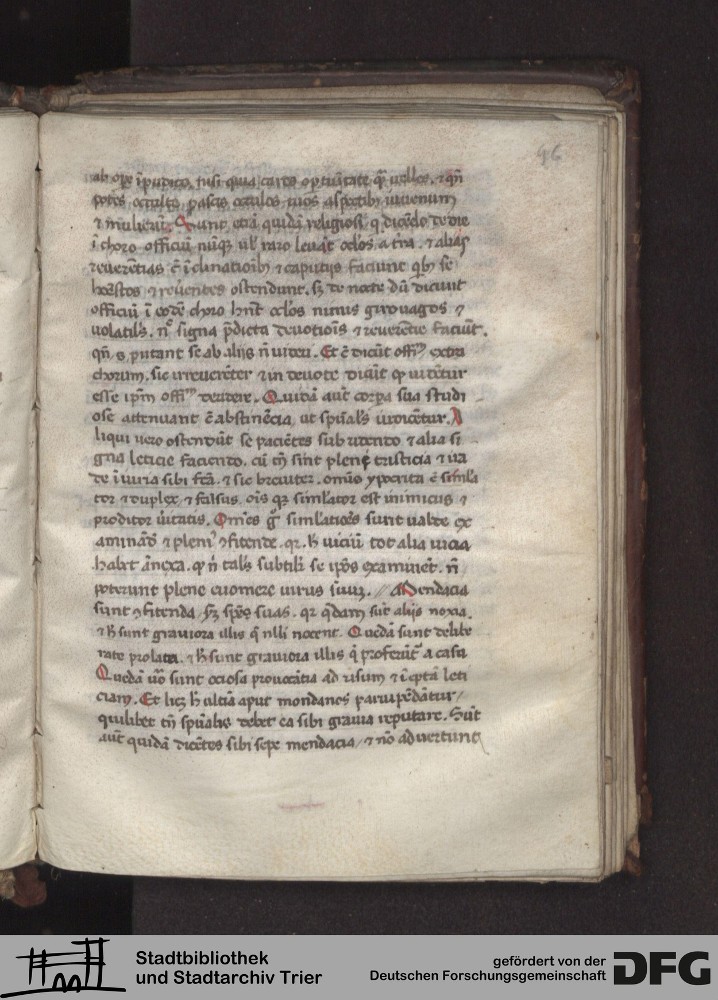 46
ab ope ĩpudico, nisi quia cares oportũitate q̃ velles. ⁊ qñ
potes occulte pascis occulos tuos aspectibꝫ iuvenum
⁊ m̃ulierũ. Sunt etiã quidã religiosi q̃ dicẽdo de die
ĩ choro officiũ nũqꝫ ul' raro levãt oclõs a t̃ra. ⁊ alias
reverẽtias c̃ ĩclinatioĩbꝫ ⁊ caputijs faciunt qbꝫ se
hoẽstos ⁊ reverẽtes ostendunt. sꝫ de nocte dũ dicunt
officiũ ĩ eodẽ choro hñt oclõs nimis girovagos ⁊
volatil's. nᶜ signa p̃dicta devotiois ⁊ reverẽtie faciũt.
qñ .s. putant se ab alijs ñ videri. Et c̃ dicũt offᵐ extra
chorum. sic irreverẽter ⁊ indevote dicũt qꝫ vidẽtur
esse ip̃m offᵐ deridere. Quidã aut̃ corpa sua studi
ose attenuant c̃ abstinẽcia, ut sp̃ual's iudicẽtur. A
liqui vero ostendũt se paciẽtes sub ridendo ⁊ alia si
gna leticie faciendo. cũ tñ sint pleni tristicia ⁊ ira
de ĩiuria sibi fcã. ⁊ sic breviter. om̃is ypocrita ẽ simĩla
tor ⁊ duplex ⁊ falsus. ois qꝫ simĩlator est inimicus ⁊
proditor ṽitatis. Om̃es g̃ simĩlatiões sunt valde ex
aminãde ⁊ pleniᵘˢ ꝯfitende. qꝛ h̃ viciũ tot alia vicia
habet ãnexa. qꝫ ñ tal's subtilit̃ se ip̃os examinẽt. ñ
poterunt plene evomere virus suũ. // Mendacia
sunt ꝯfitenda sꝫ sp̃es suas. qꝛ q̃dam sũt alijs noxia.
⁊ h̃ sunt graviora illis q̃ nlli nocent. Quedã sunt delibe
rate prolata. ⁊ h̃ sunt graviora illis q̃ proferũt̃ a casu
Quedã ṽo sunt ociosa provocãtia ad risum ⁊ ĩeptã leti
ciam. Et licꝫ h̃ ultĩa aput mondanos parvipẽdãtur/
quilibet tñ sp̃ualis debet ea sibi gravia reputare. Sũt
aut̃ quidã dicẽtes sibi sepe mendacia/ ⁊ nõ advertunt
Stadtbibliothek
und Stadtarchiv Trier
gefördert von der
Deutschen Forschungsgemeinschaft
DFG